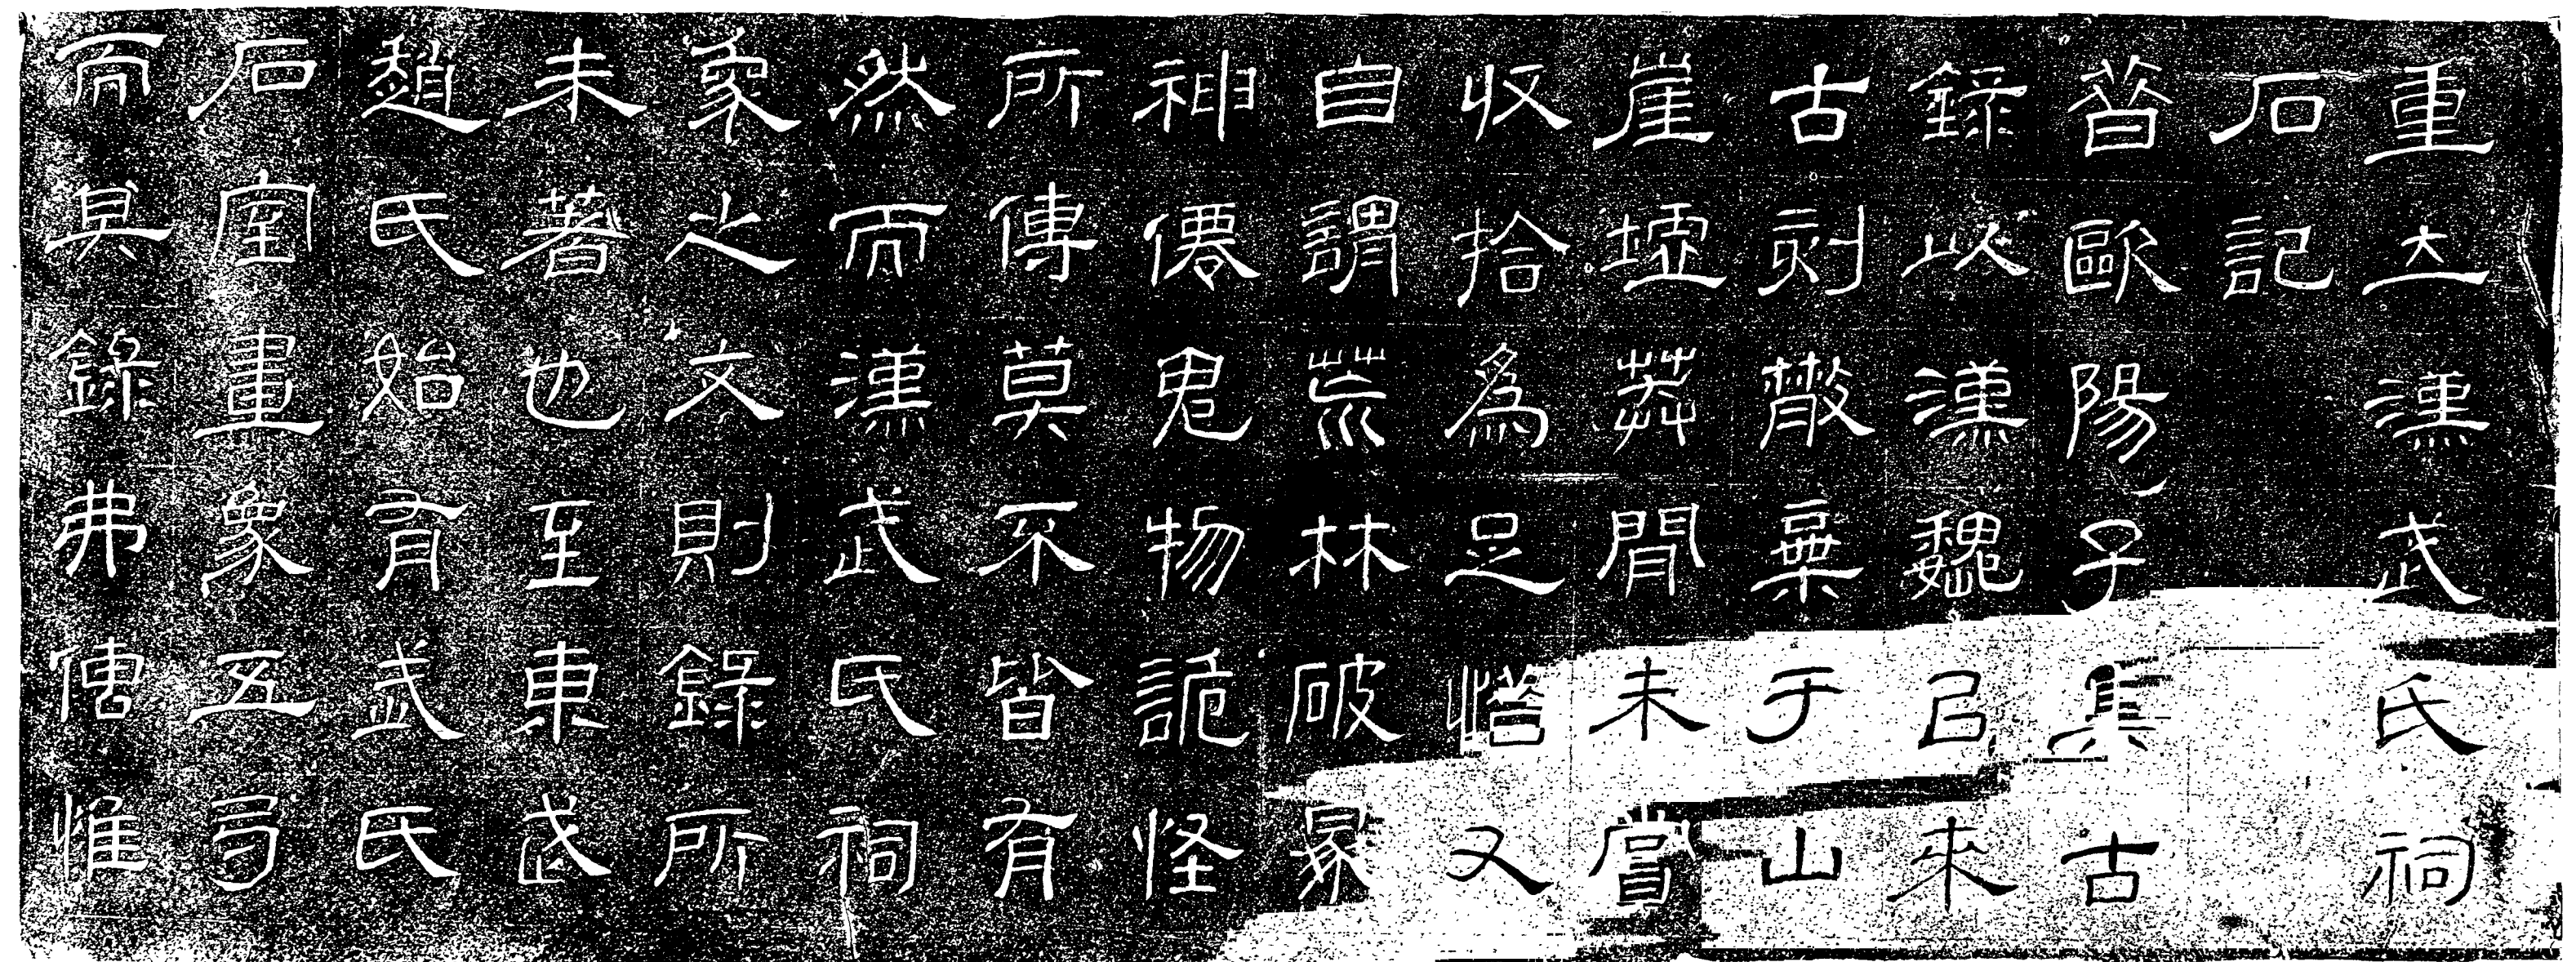 重立漢武氏祠
石記
昔歐陽子集古
錄以漢魏已來
古刻散棄于山
崖墟莽閒未嘗
收拾為足惜又
自謂荒林破冢
神僊鬼物詭怪
所傳莫不皆有
然而漢武氏祠
象之文則錄所
未著也至東武
趙氏始有武氏
石室畫象五弓
而其錄弗傳惟